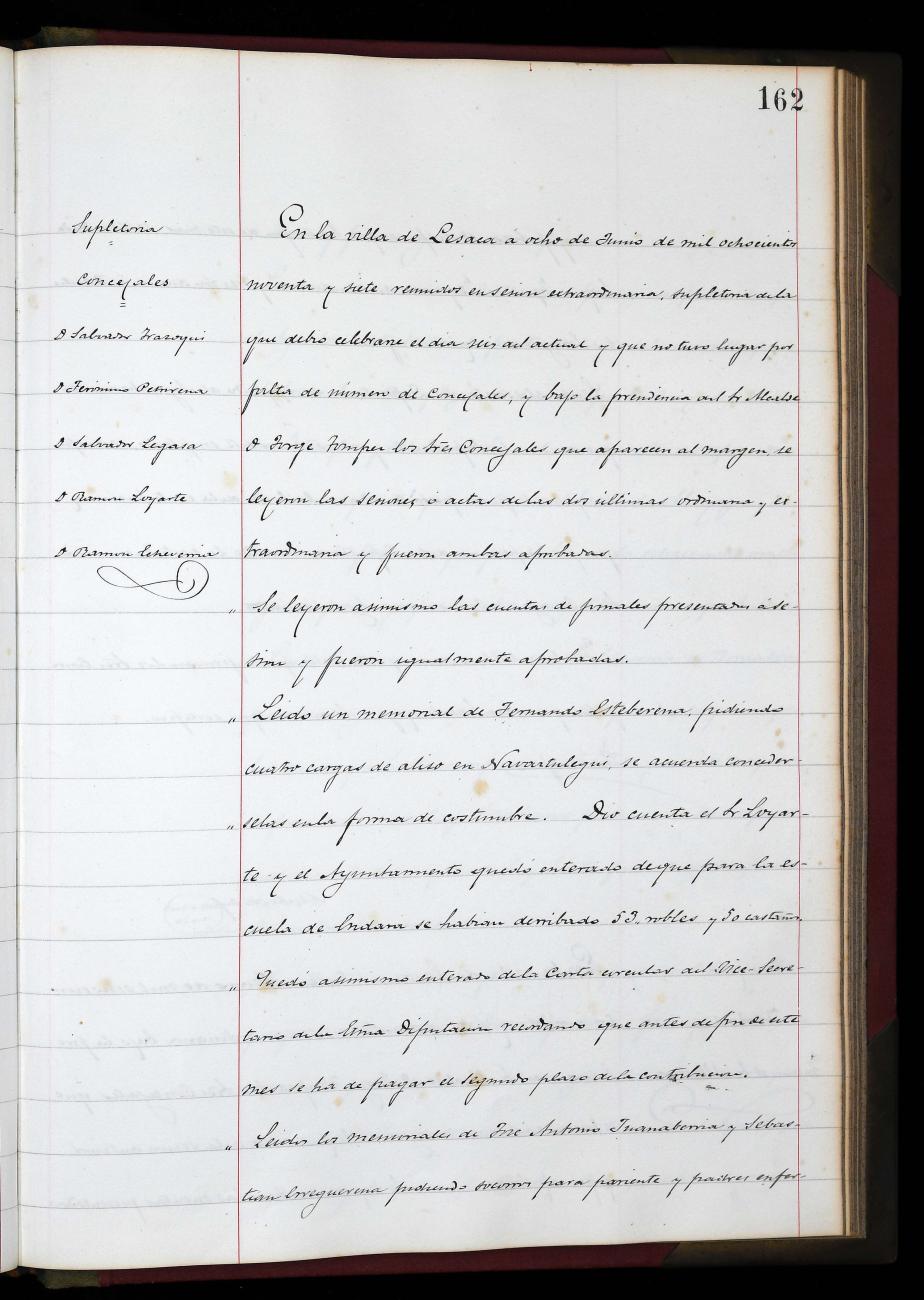 162
Supletoria
Concejales
D Salvador Irazoqui
D Jerónimo Petrirena
D Salvador Legasa
D Ramon Loyarte
D Ramon Echeverria
En la villa de Lesaca á ocho de Junio de mil ochocientos
noventa y siete reunidos en sesion extraordinaria, supletoria de la
que debió celebrarse el dia seis del actual y que no tuvo lugar por
falta de número de Concejales, y bajo la presidencia del Sr Alcalde
D Jorge los tres Concejales que aparecen al margen, se
leyeron las sesiones ó actas de las dos últimas ordinaria y ex-
traordinaria y fueron ambas aprobadas.
" Se leyeron asimismo las cuentas de jornales presentadas á se-
sion y fueron igualmente aprobadas.
" Leido un memorial de Fernando Esteberena, pidiendo
cuatro cargas de aliso en Navaztulegui, se acuerda conceder-
" selas en la forma de costumbre. Dio cuenta el Sr Loyar-
te y el Ayuntamiento quedó enterado de que para la es-
cuela de Endara se habian derribado 53,, robles y 50 castaños.
" Quedó asimismo enterado de la Carta circular del Vice-Secre-
tario de la Exma Diputacion recordando que antes de fin de este
mes se ha de pagar el segundo plazo de la contribucion.
" Leidos los memoriales de José Antonio Juanaberria y Sebas-
tian Erreguerena pidiendo socorros para pariente y padres enfer-